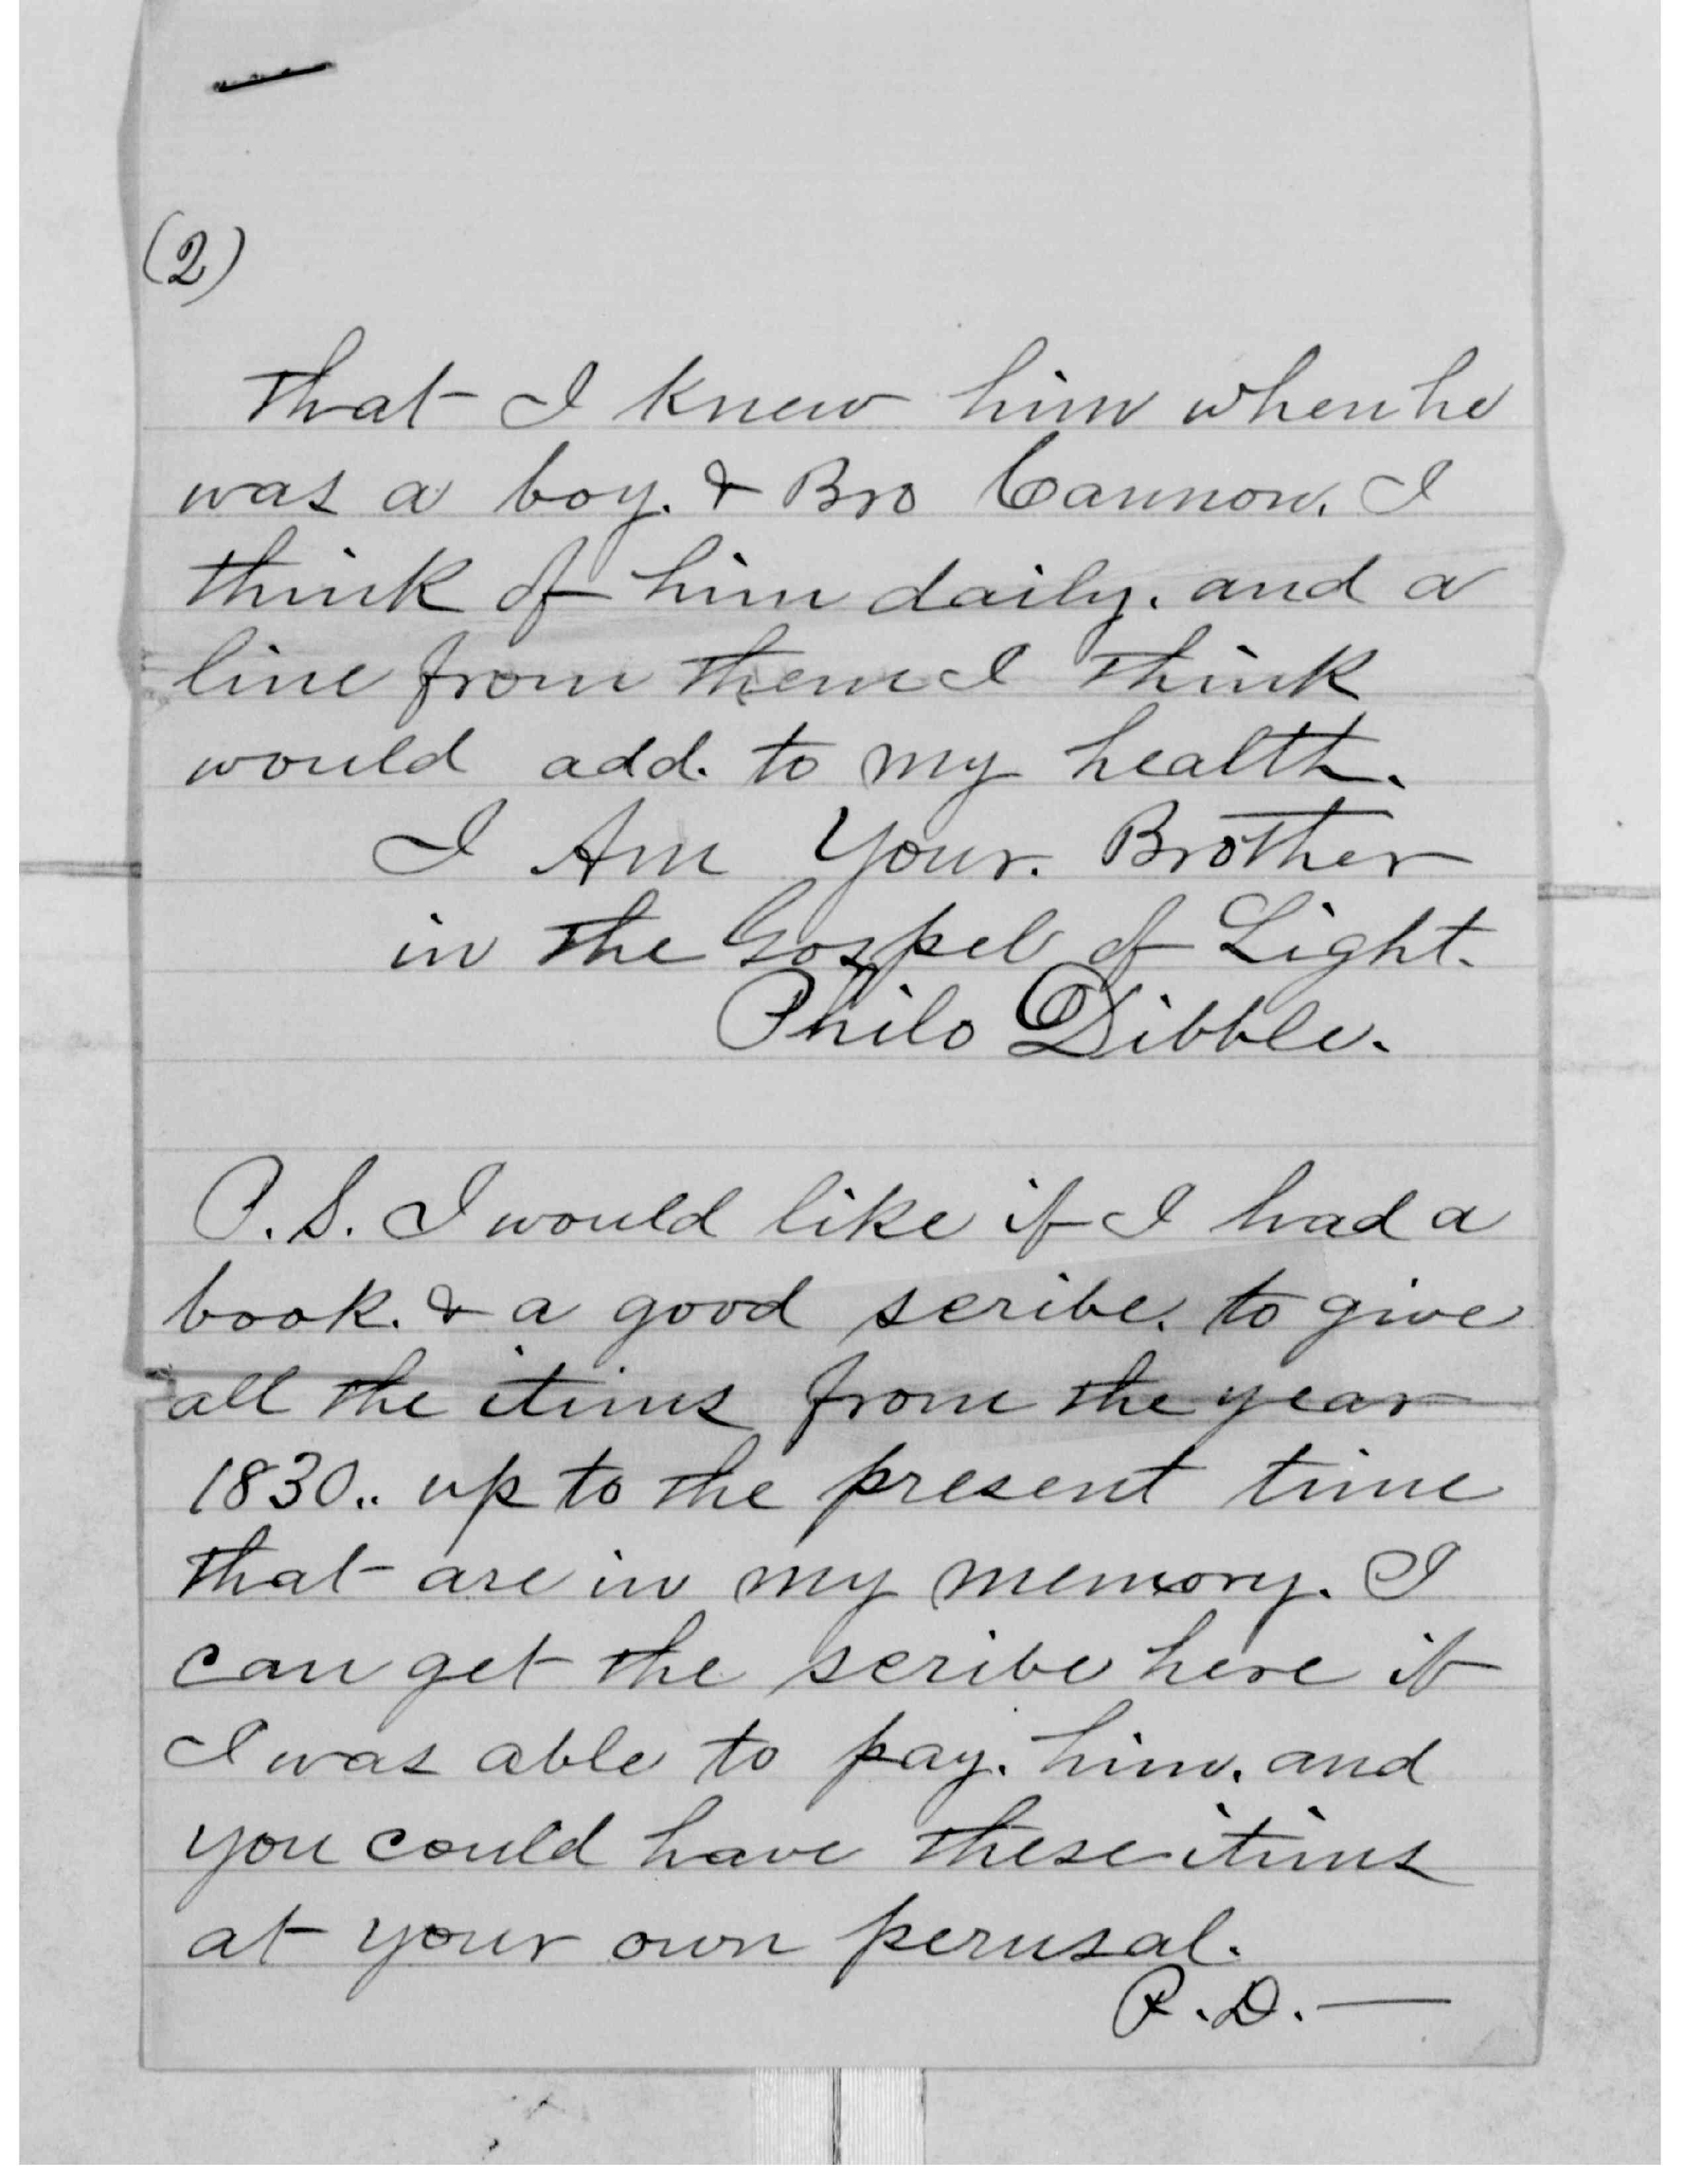 (2)
that I knew him when he
was a boy. & Bro Cannon. I
think of him daily. and a
line from them I think
would add. to my health.
I Am Your. Brother
in the Gospel of Light.
Philo Dibble.
P.S. I would like if I had a
book. & a good scribe. to give
all the itims from the year
1830.. up to the present time
that are in my memory. I
can get the scribe here if
I was able to pay. him. and
you could have these itims
at your own perusal.
P.D.—